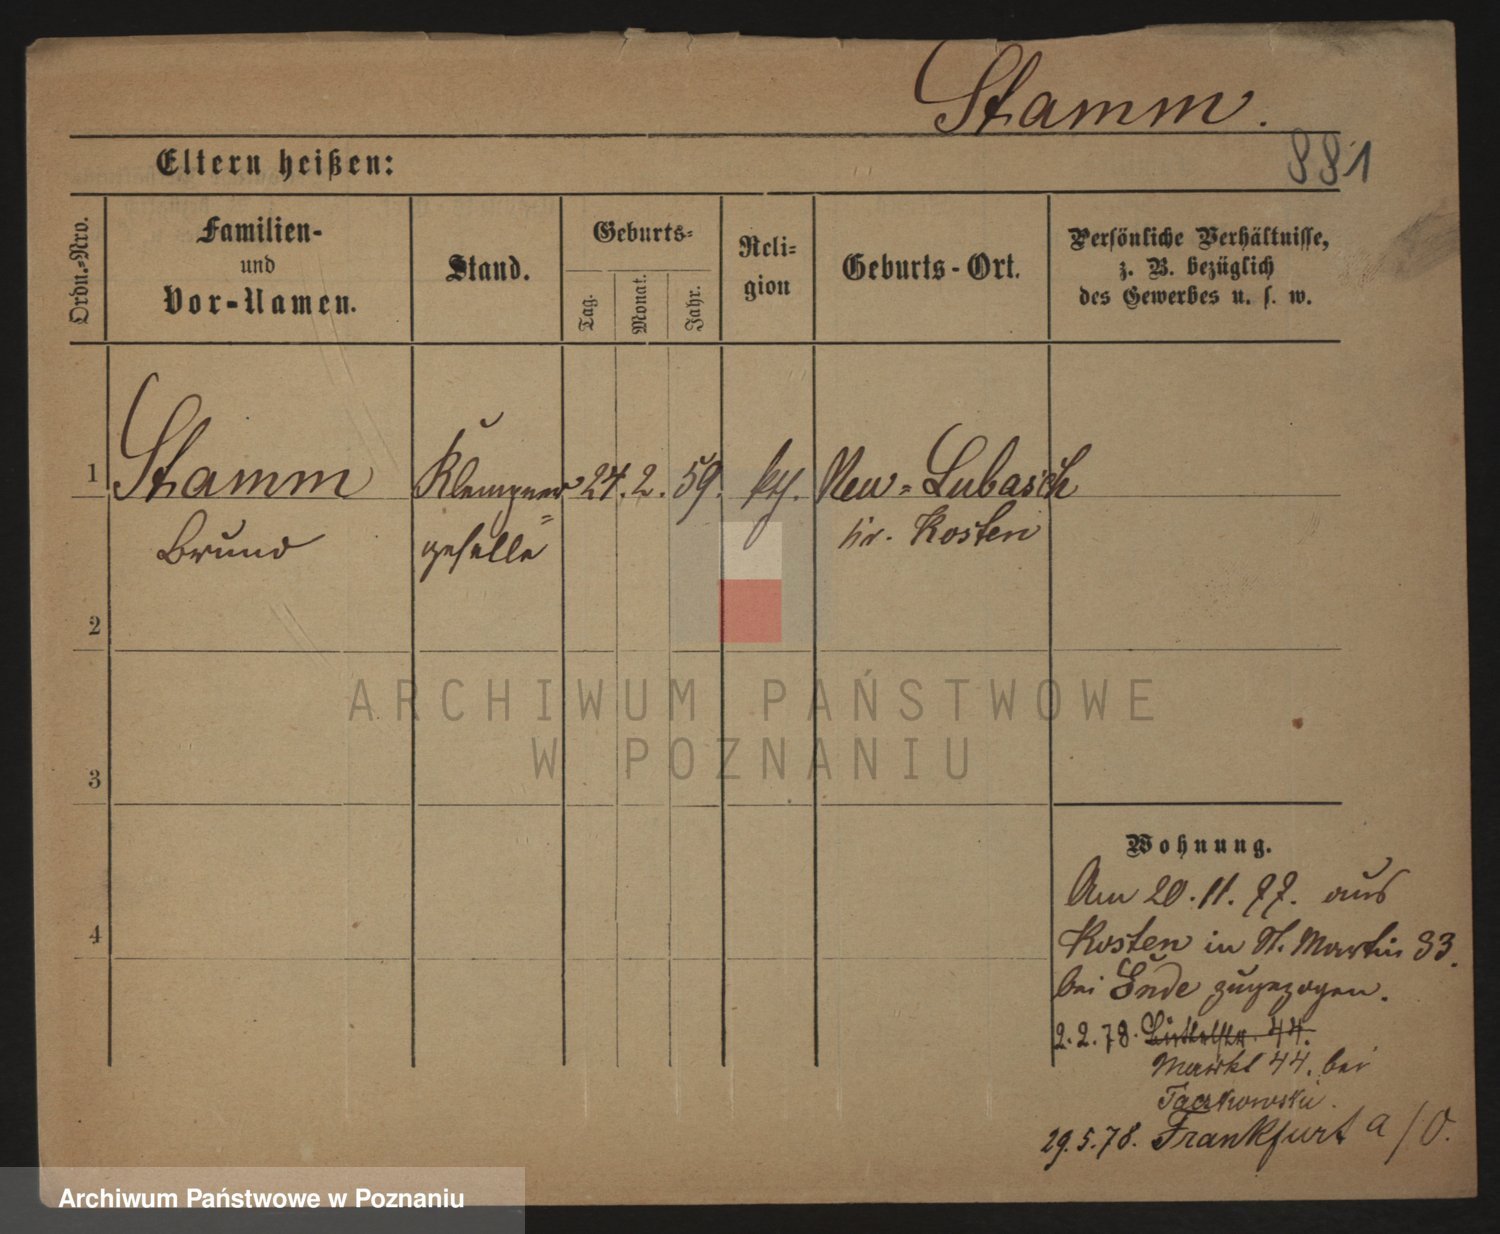 Stamm.
881
Eltern heißen:
Ordn.-Nro.
Familien-
und
Vor-Namen.
Stand.
Geburts-
Tag.
Monat.
Jahr.
Reli-
gion
Geburts-Ort.
Persönliche Verhältnisse,
z. B. bezüglich
des Gewerbes u. s. w.
1 Stamm Klempner= 24. 2. 59. Neu-Lubasch
Bruno geselle Kr. Kosten
2
3
4
Wohnung.
Am 20. 11. 77. aus
Kosten in St. Martin 33.
bei Ende zugezogen.
2. 2. 78. 44.
Markt 44. bei
29. 5. 78. Frankfurt a/O.
ARCHIWUM PAŃSTWOWE
W POZNANIU
Archiwum Państwowe w Poznaniu